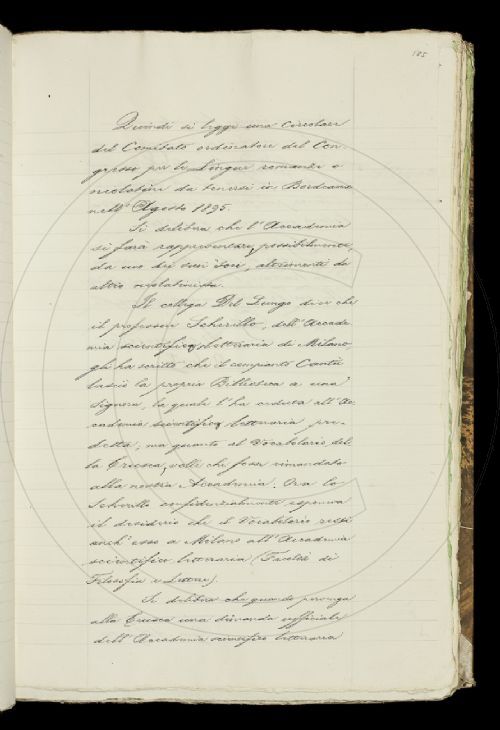 185
Quindi si legge una Circolare
del Comitato ordinatore del Con
gresso per le Lingue romanze o
neolatine da tenersi in Bordeaux
nell' Agosto 1895.
Si delibera che l'Accademia
si farà rappresentare, possibilmente,
da uno dei suoi Soci, altrimenti da
altro neolatinista.
Il collega Del Lungo dice che
il professore Scherillo, dell'Accade
mia scientifico letteraria di Milano
gli ha scritto che il compianto Cantù
lasciò la propria Biblioteca a una
Signora, la quale l'ha ceduta all'Ac
cademia scientifico letteraria pre-
detta; ma quanto al Vocabolario del
la Crusca, volle che fosse rimandato
alla nostra Accademia. Ora lo
Scherillo confidenzialmente esponeva
il desiderio che il Vocabolario resti
anch'esso a Milano all'Accademia
scientifico letteraria (Facoltà di
Filosofia e Lettere).
Si delibera che quando pervenga
alla Crusca una dimanda ufficiale
dell'Accademia scientifico letteraria